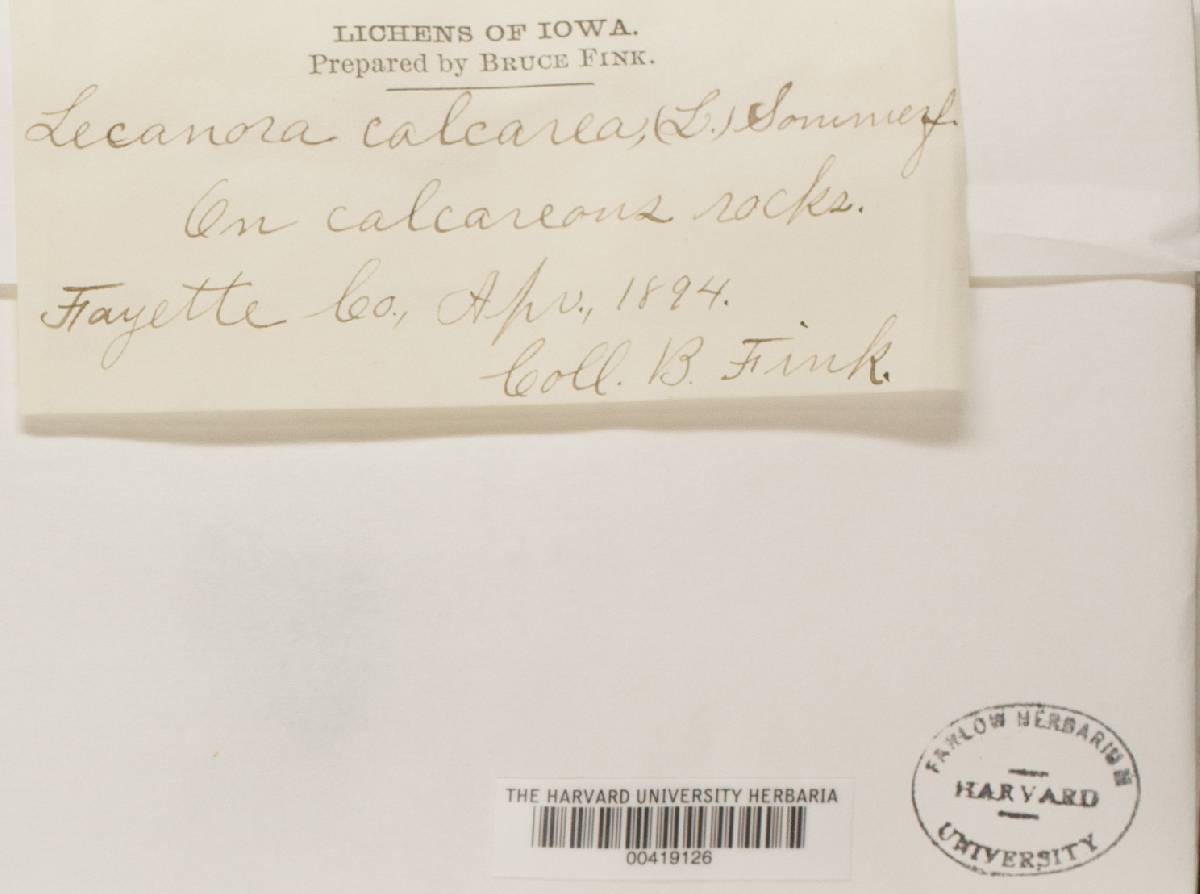 LICHENS OF IOWA.
Prepared by BRUCE FINK.
Lecanora calcarea, (L.) Sommerf.
On calcareous rocks.
Fayette Co., Apr., 1894.
Coll. B. Fink.
FARLOW HERBARIUM
HARVARD
UNIVERSITY
THE HARVARD UNIVERSITY HERBARIA
00419126